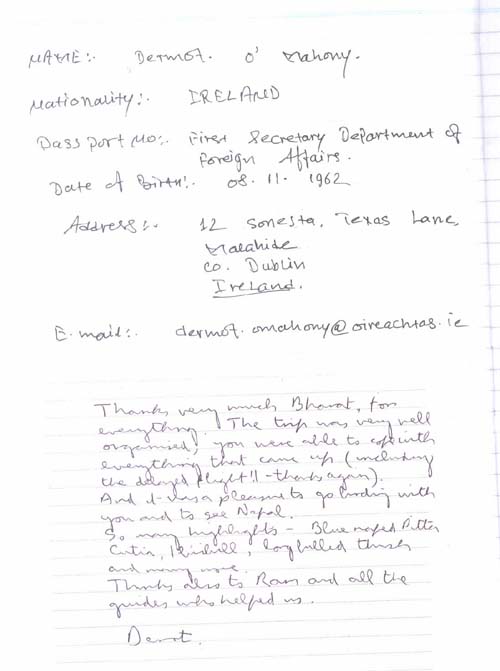 NAME:. Dermot. O' Mahony.
Nationality:. IRELAND
Passport No:. First Secretary Department of
Foreign Affairs.
Date of Birth:. 08. 11. 1962
Address:. 12 Sonesta, Texas Lane,
Malahide
Co. Dublin
Ireland.
E.mail:. dermot.omahony@oireachtas.ie
Thanks very much Bharat, for
everything. The trip was very well
organised, you were able to cope with
everything that came up (including
the delayed flight!! - thanks again).
And it was a pleasure to go birding with
you and to see Nepal.
So many highlights - Blue naped Pitta
Cutia, Ibisbill, long billed thrush
and many more.
Thanks also to Ram and all the
guides who helped us.
Dermot.